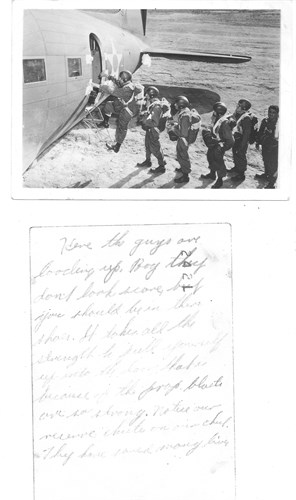 Here the guys are
loading up. Boy they
don't look scare, but
you should be in their
shoes. It takes all the
strength to pull yourself
up into the door. That is
because of the prop blasts
are so strong. Notice our
reserve chutes on our chest.
They have saved many lives